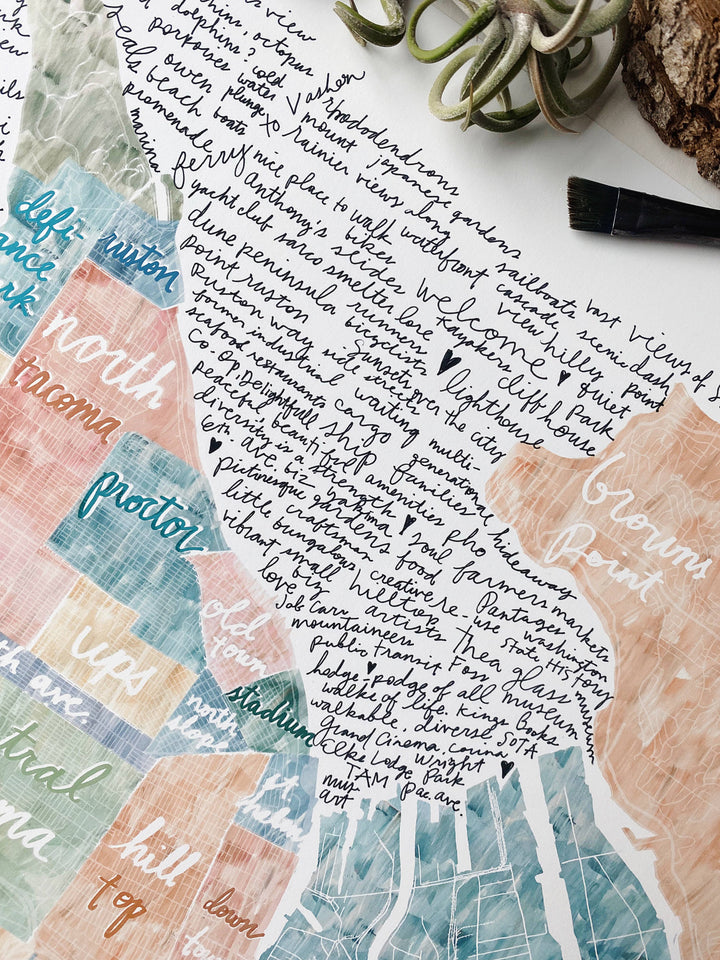 view
dolphins, octopus
dolphins?
porpoises cold
seals water
owen plunge
beach xo
promenade boats
marina
Vashon
rhododendrons
mount japanese
rainier gardens
views along
ferry nice place to walk waterfront sailboats vast views of
Anthony's bikes cascade scenic dash
yacht club slides welcome view hilly point
dune sarco smelter love kayakers ♥ quiet
peninsula runners cliff park
point ruston bicyclists ♥ lighthouse house
Ruston way wide streets
sunsets over the city
former industrial waiting multi-
seafood restaurants cargo generational hideaway
co-op, Delightfull ship families
peaceful beautiful amenities pho
diversity is a strength ♥ soul farmers markets
6th. ave. biz yakima
♥ picturesque gardens food Pantages washington
little craftsman re-use State HISTORY
bungalows, creative
vibrant small hilltop thea glass museum
love biz artists museum
Job Carr
mountaineers
public transit Foss
hodge-podge of all
♥ walks of life. Kings books
walkable, diverse SOTA
Grand Cinema, corina
Wright
elks Lodge Park
TAM Pac. ave.
mur
art
♥
defi-
ance
rk
ruston
north
tacoma
proctor
old
town
ups
th ave.
north
slope
stadium
tral
ma
hill
top
down
to
browns
Point